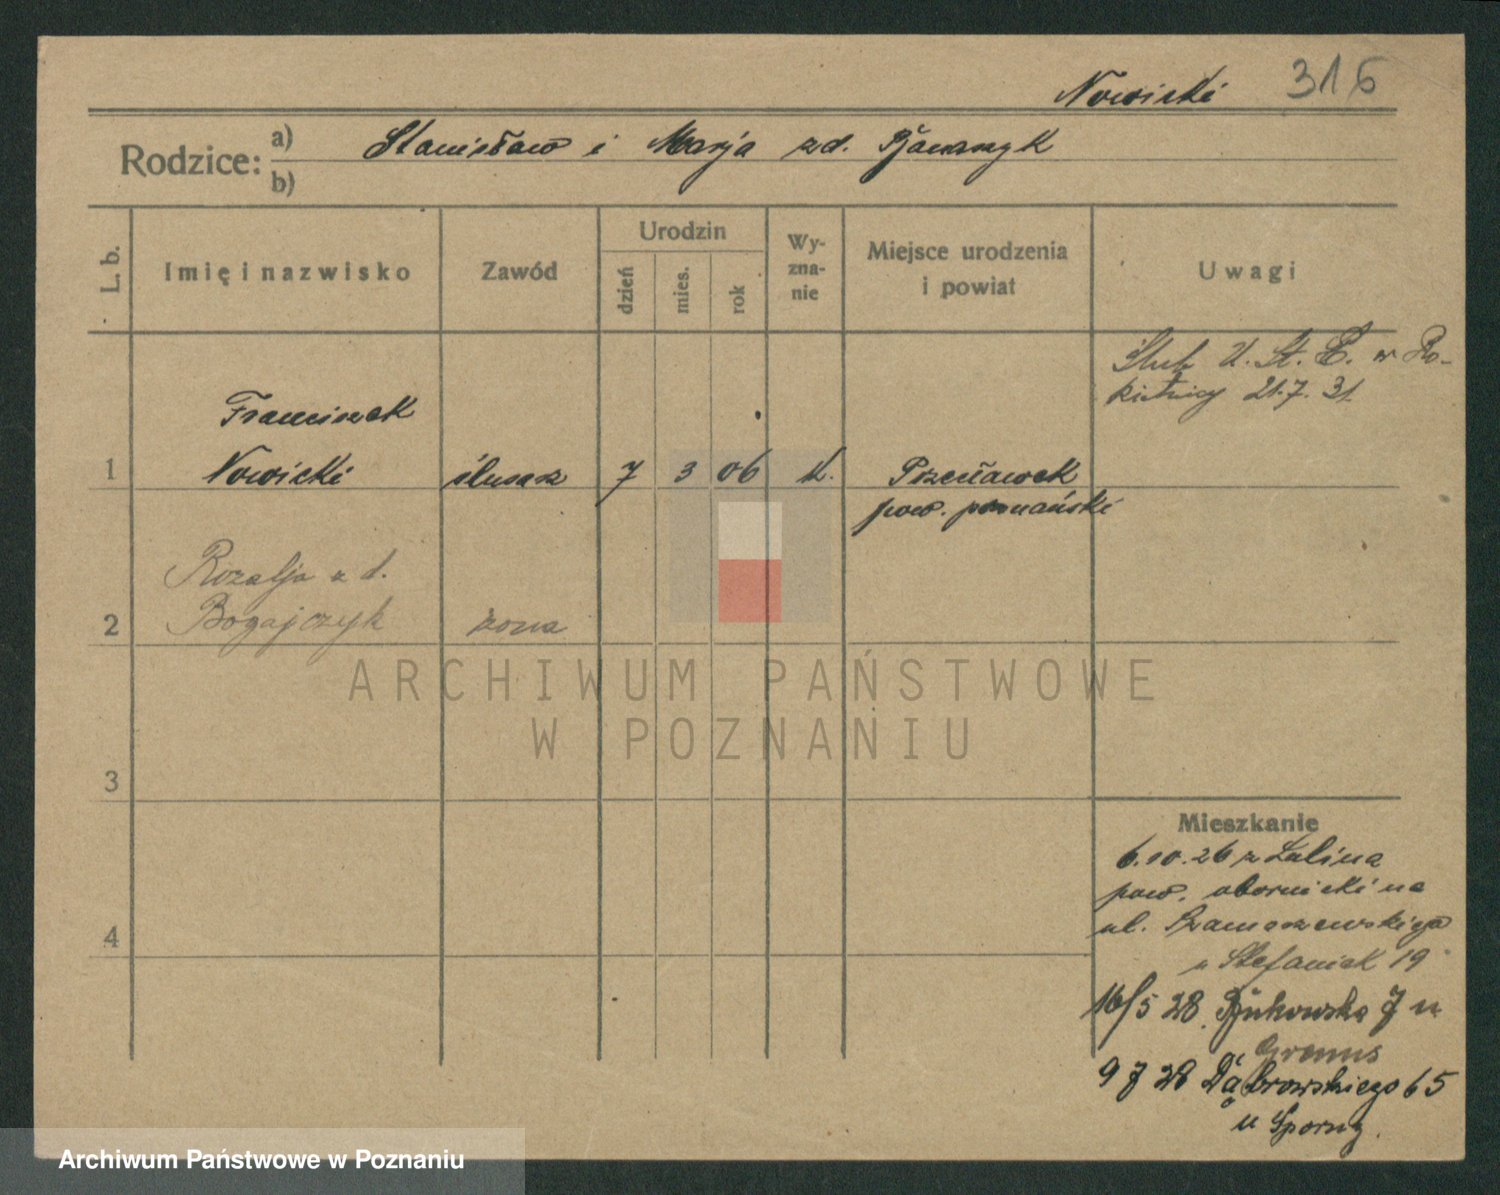 Nowicki 316
Rodzice:
a) Stanisław i Marja zd.
b)
L. b.
Imię i nazwisko
Zawód
Urodzin
dzień
mies.
rok
Wy-
zna-
nie
Miejsce urodzenia
i powiat
Uwagi
Ślub U. St. C. w Ro-
kietnicy 21.7. 31.
Franciszek
1 Nowicki ślusarz 7 3 06 k. Przecławek
pow. poznański
Rozalja z d.
2 Bogajczyk żona
3
4
Mieszkanie
6.10.26 z Lulina
pow. obornicki na
ul. Szamarzewskiego
u Stefaniak 19
16/5 28. Bukowska 7 u
9 7 28 Dąbrowskiego 65
u Sporny.
ARCHIWUM PAŃSTWOWE
W POZNANIU
Archiwum Państwowe w Poznaniu